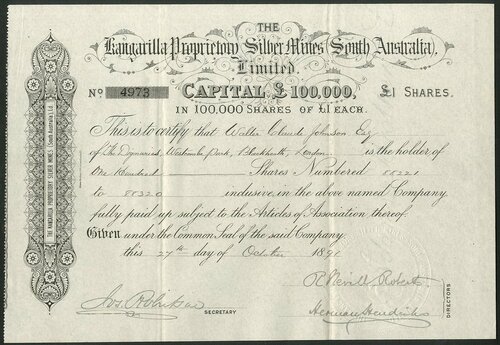 THE
Kangarilla Proprietory Silver Mines (South Australia),
Limited.
No 4973 CAPITAL £100,000, £1 SHARES.
IN 100,000 SHARES OF £1 EACH.
This is to certify that Walter Claude Johnson Esq
of The Dynaries, Westcombe Park, Blackheath, London is the holder of
One Hundred Shares Numbered 88221
to 88320 inclusive, in the above named Company
fully paid up subject to the Articles of Association thereof.
Given under the Common Seal of the said Company,
this 27th day of October 1891
R Nevill Roberts
SECRETARY
Herman Hendriks
DIRECTORS
THE KANGARILLA PROPRIETORY SILVER MINES (South Australia), Ltd